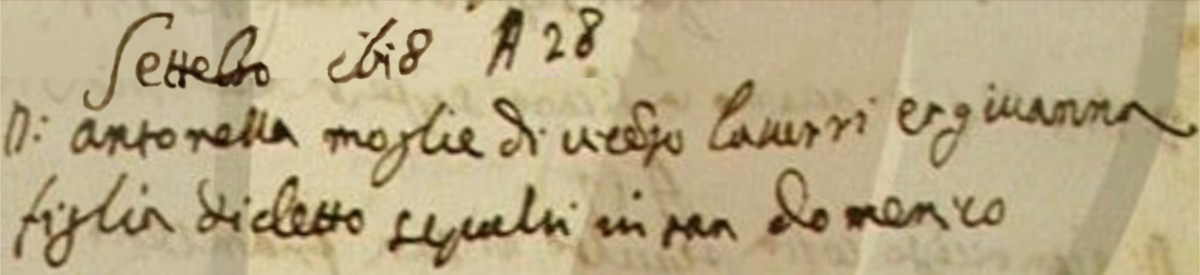 Settebro ibi8 A 28
D: antonella moglie di vicēso lauurri et giuanna
figlia di detto sepulti in san domenico